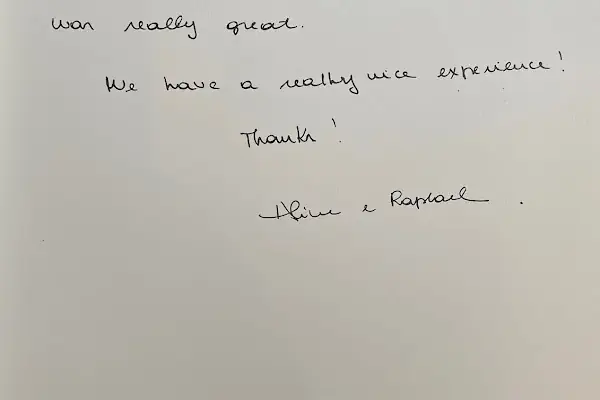 was really great.
We have a really nice experience!
Thanks!
Aline e Raphael.